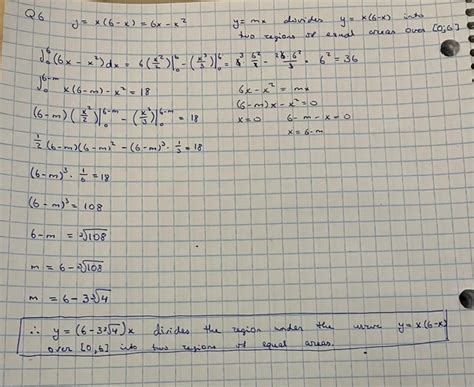 Q6 y = x(6-x) = 6x - x² y = mx divides y = x(6-x) into
two regions of equal areas over [0,6]
∫₀⁶(6x - x²)dx = 6(x²/2)|₀⁶ - (x³/3)|₀⁶ = 6² = 36
∫₀^(6-m) x(6-m) - x² = 18 6x - x² = mx
(6-m)(x²/2)|₀^(6-m) - (x³/3)|₀^(6-m) = 18 (6-m)x - x² = 0
x = 0 6 - m - x = 0
x = 6-m
1/2 (6-m)(6-m)² - (6-m)³ · 1/3 = 18
(6-m)³ · 1/6 = 18
(6-m)³ = 108
6-m = ³√108
m = 6 - ³√108
m = 6 - 3³√4
∴ y = (6 - 3³√4)x divides the region under the curve y = x(6-x)
over [0,6] into two regions of equal areas.